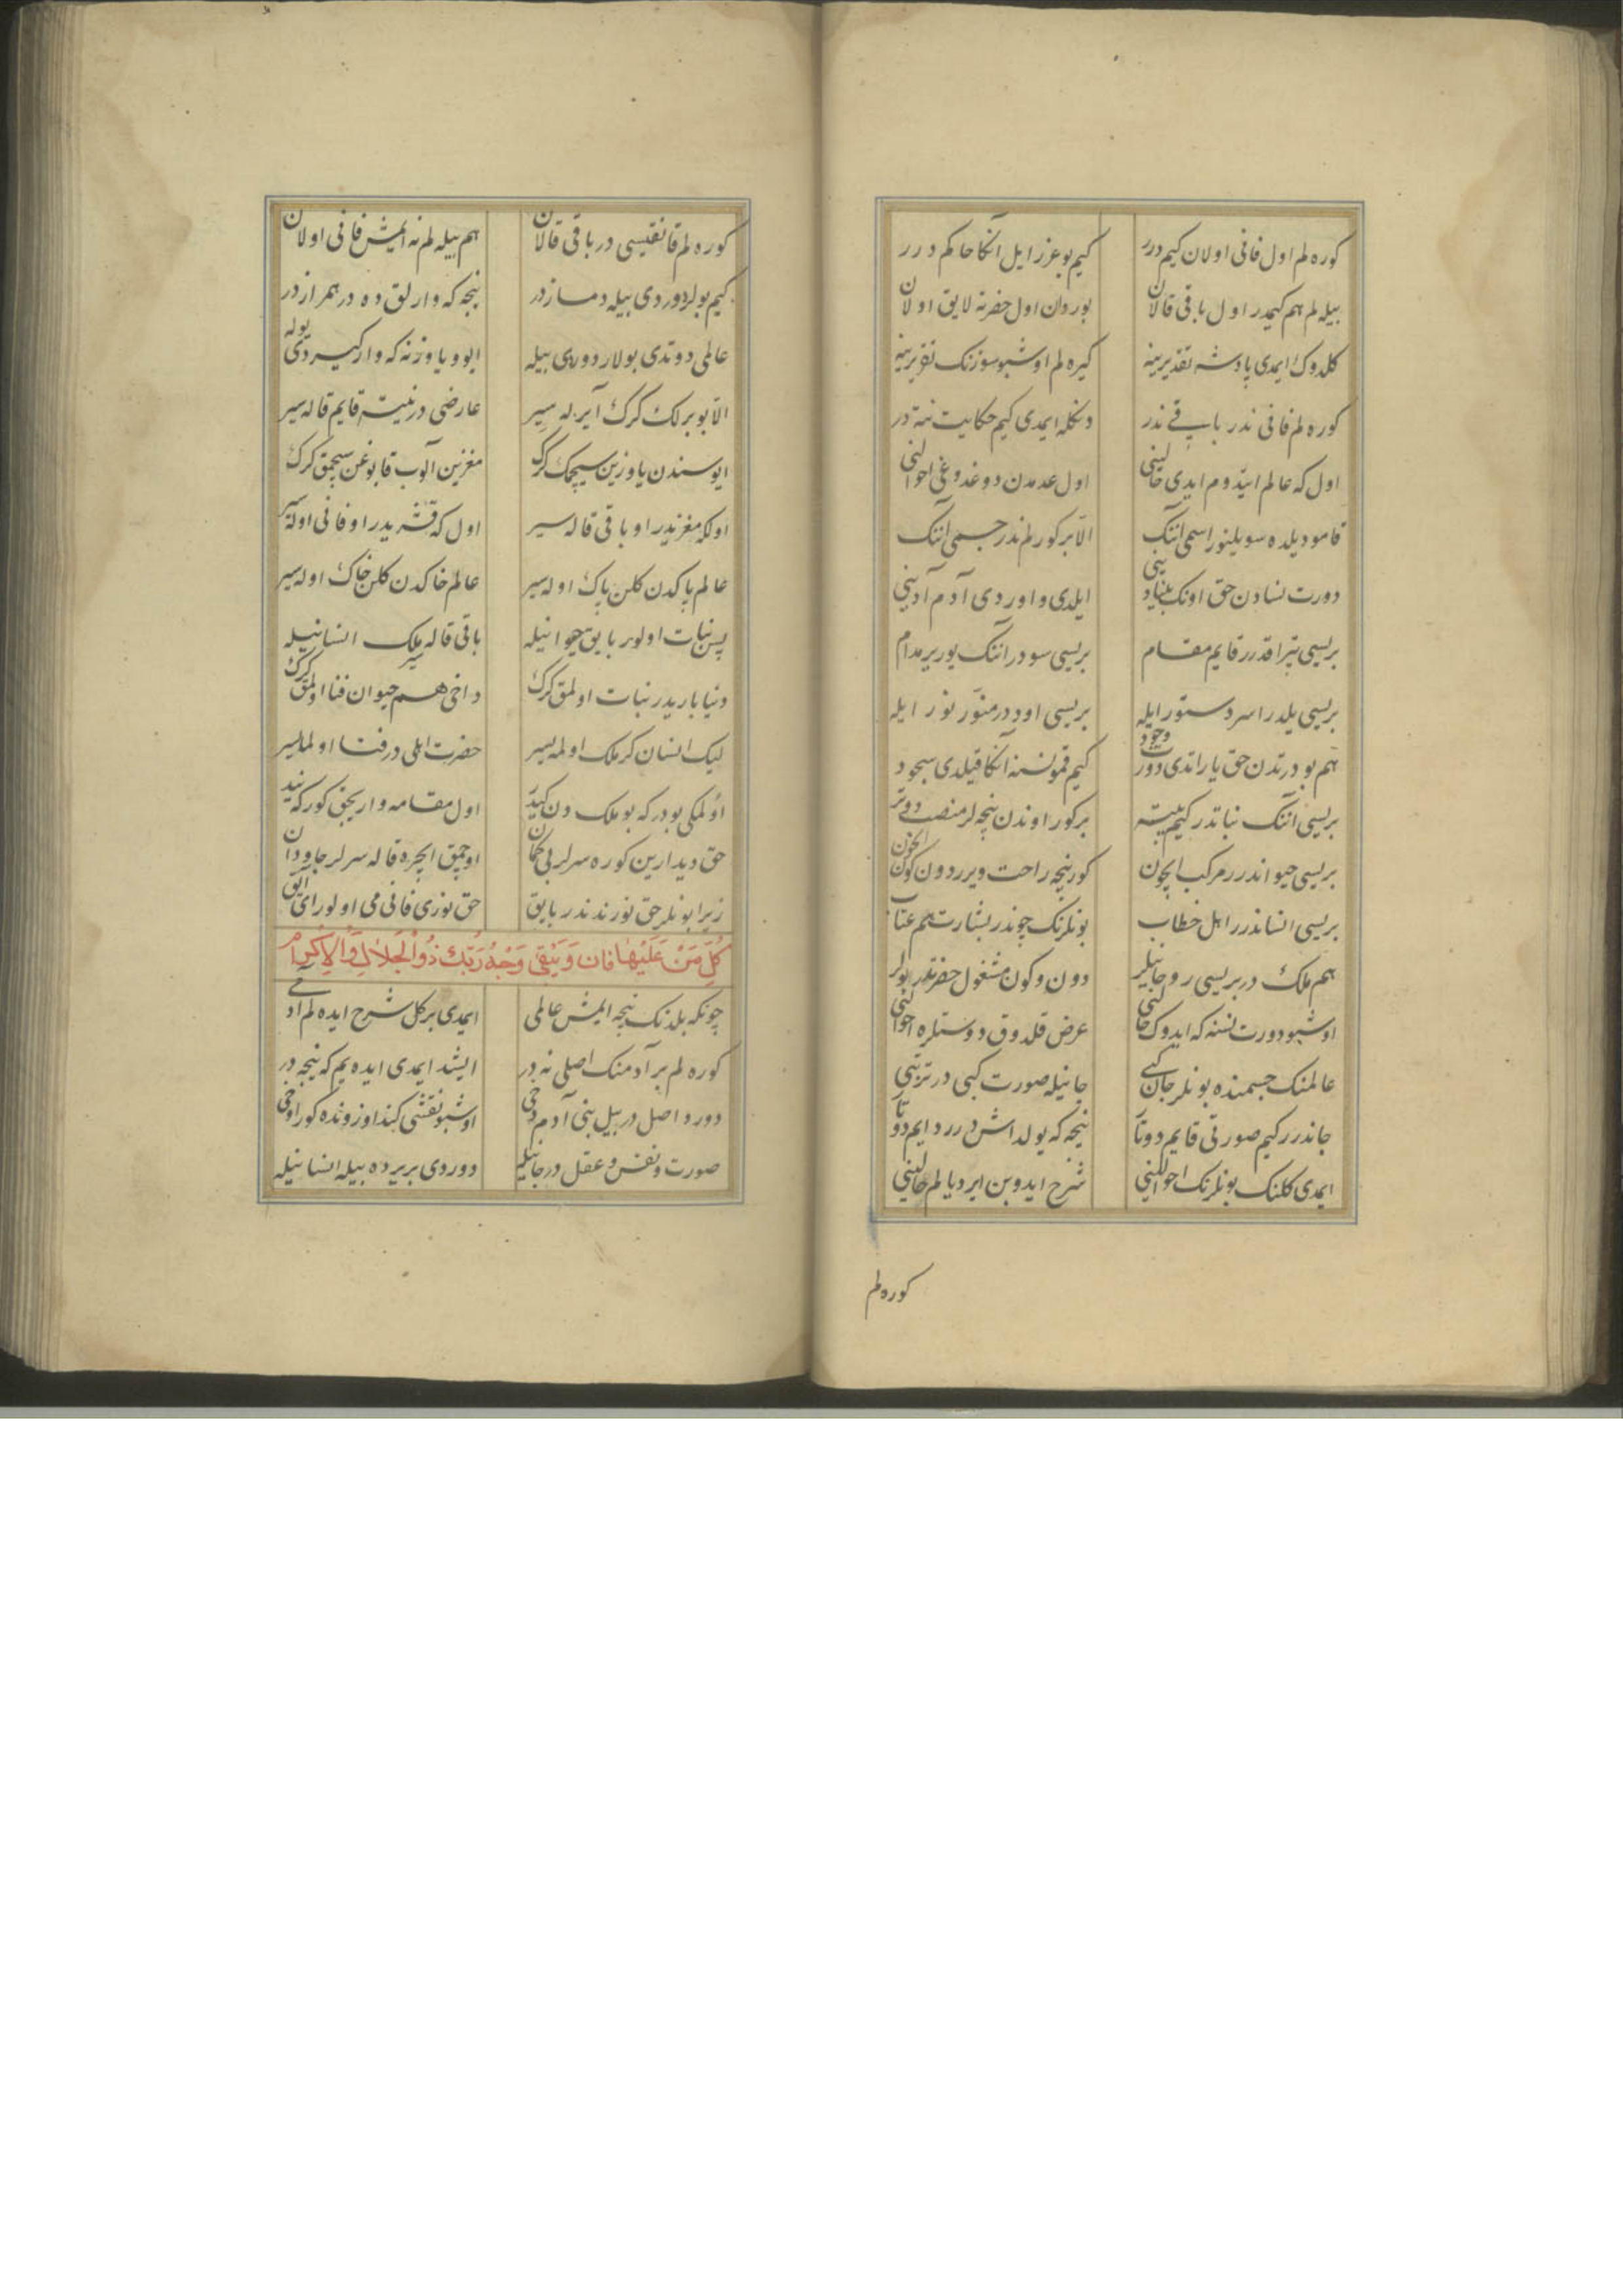 كوره لم اول فانی اولان كیم درر كیم بو عزرایل آنكا حاكم درر
بیله لم هم كیمدر اول باقی قالان بوردان اول حضرته لایق اولان
كلدوك ایمدی پادشه تقدیرینه كیره لم اوشبو سوزنك تقریرینه
كوره لم فانی ندر باقی ندر دنكله ایمدی كیم حكایت نته در
اول كه عالم ایتدوم ایدی حالینی اول عدمدن دوغدوغی احوالنی
قامو دیلده سویلنور اسمی آننك الا بر كورلم ندر جسمی آننك
دورت نسادن حق اونك بنیادینی ایلدی و اوردی آدم آدینی
بریسی تپراقدرر قایم مقام بریسی سودر آننك یوریر مدام
بریسی یلدر اسر دستور ایله بریسی اوددر منور نور ایله
هم بو درتدن حق یاراتدی دورت وجود كیم قمو نسنه آنكا قیلدی سجود
بریسی آننك نباتدر كیم بیته بر كور اوندن نیچه لر منصب دوتر
بریسی حیواندرر مركب ایچون كور نیچه راحت ویرر دون كون ایچون
بریسی انساندرر اهل خطاب بونلرنك چوندر بشارت هم عتاب
هم ملك در بریسی روحانیلر دون و كون مشغول حضرتدر بولر
اوشبو دورت نسنه كه ایدوك حالنی عرض قلدوق دوستلره احوالنی
عالمنك جسمنده بونلر جان كبی جانیله صورت كبی در تربتی
جاندرر كیم صورتی قایم دوتا نیجه كه یولداش درر دایم دوتا
ایمدی كلنك بونلرنك احوالینی شرح ایدوبن ایردیالم حالینی
كوره لم
كوره لم قانقیسی در باقی قالان هم بیله لم نه ایمش فانی اولان
كیم بولر دوردی بیله دمسازدر نیجه كه وارلق ده در همرازدر
عالمی دوتدی بولار دوردی بیله ایو و یاوز نه كه وار كیردی یوله
الا بو برلك كرك آیریله سیر عارضی در نیته قایم قاله سیر
ایوسندن یاوزین سیچمك كرك مغزین آلوب قابوغن سچمق كرك
اولكه مغزیدر او باقی قاله سیر اول كه قشریدر او فانی اوله سیر
عالم پاكدن كلن پاك اوله سیر عالم خاكدن كلن خاك اوله سیر
پس نبات اولور بایق حیوانیله باقی قاله سیر ملك انسانیله
دنیا باریدر نبات اولمق كرك داخی هم حیوان فنا اولمق كرك
لیك انسان كر ملك اولمه سیر حضرت اهلی در فنا اولمایسر
اولمكی بودر كه بو ملك دن كیده اول مقامه واریجق كور كه نیده
حق دیدارین كوره سرلر بی كمان اوچمق ایچره قاله سرلر جاودان
زیرا بونلر حق نورندندر بایق حق نوری فانی می اولور ای آیق
كُلُّ مَنْ عَلَيْهَا فَانٍ وَيَبْقَى وَجْهُ رَبِّكَ ذُو الْجَلَالِ وَالْإِكْرَامِ
چونكه بلدنك نیجه ایمش عالمی ایمدی بر كل شرح ایده لم آدمی
كوره لم بر آدمنك اصلی نه در ایشد ایمدی ایده یم كه نیجه در
دورد اصل در بیل بنی آدم دخی اوشبو نقشی كند اوزونده كور اوخی
صورت و نفس و عقل در جانیله دوردی بریرده بیله انسانیله